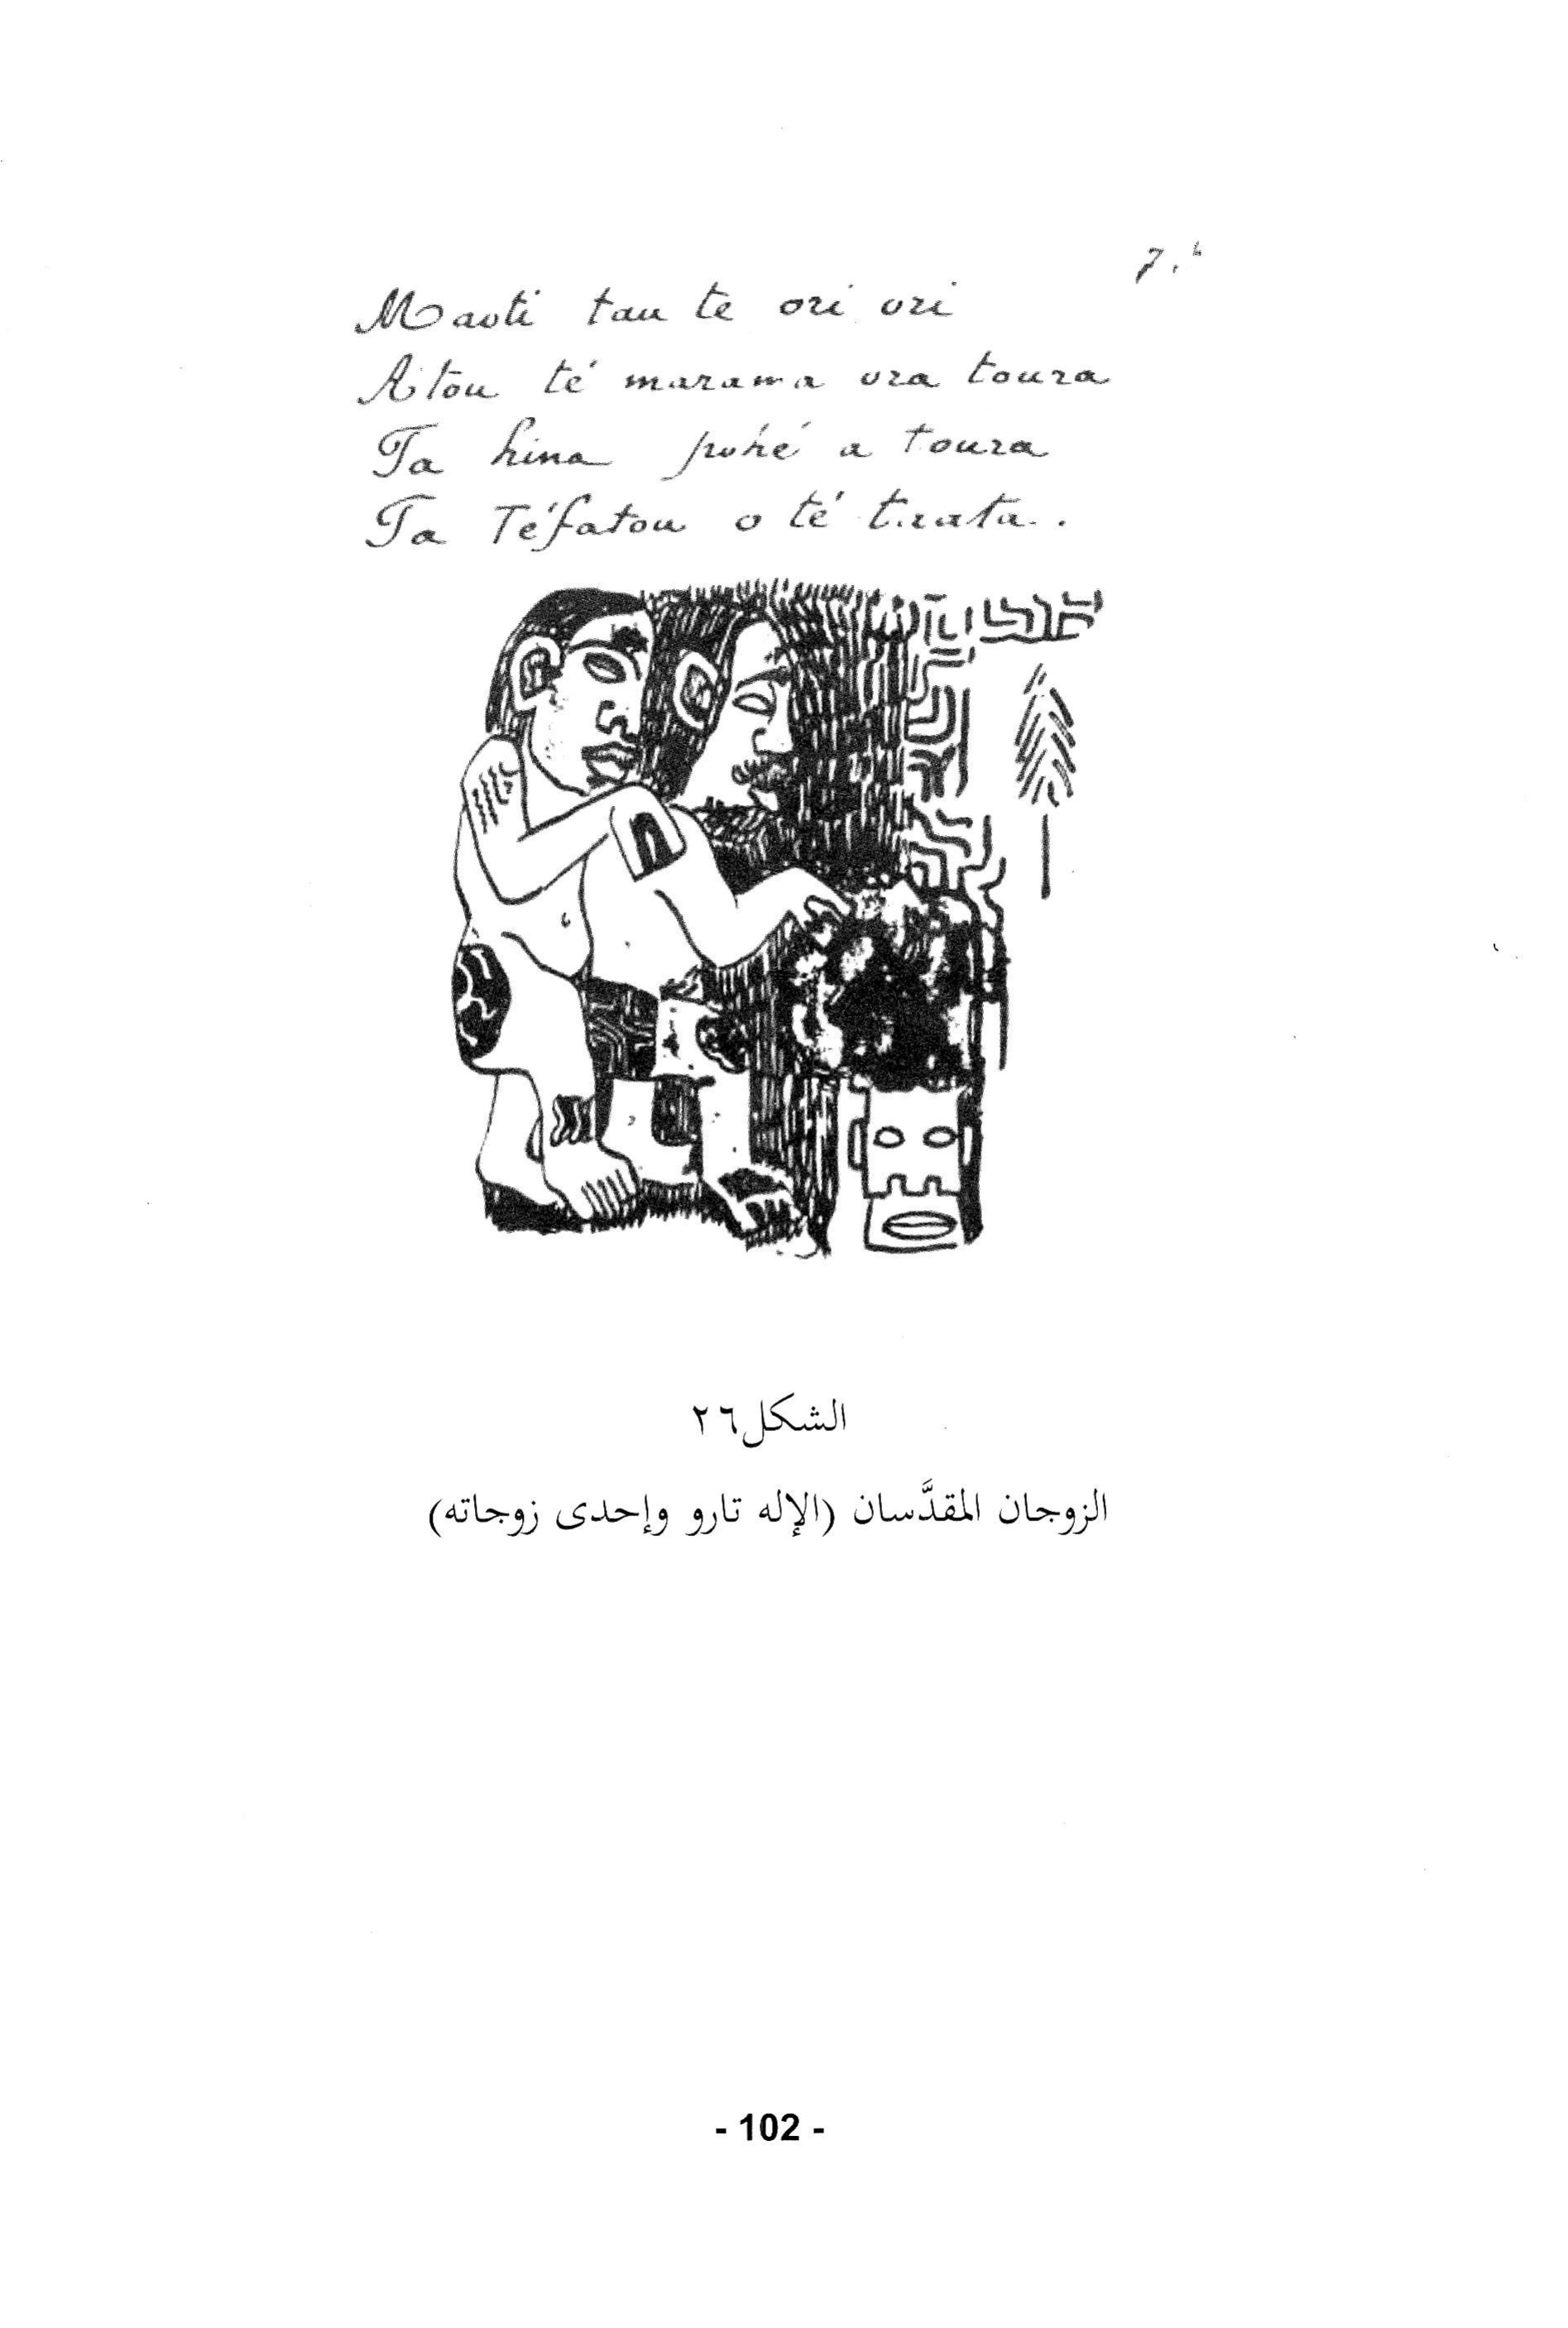 7.
Maoti tau te ori ori
Aitou té marama ora toura
Ta hina pohé a toura
Ta Téfatou o té tiaata.
الشكل٢٦
الزوجان المقدَّسان (الإله تارو وإحدى زوجاته)
- 102 -